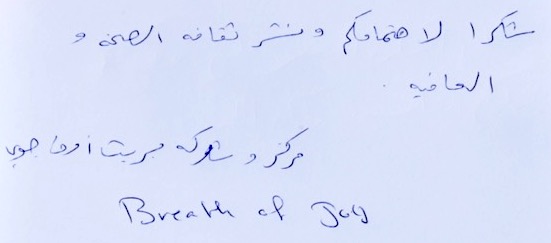 شكرا لاهتمامكم ونشر ثقافه الصحه و
العافيه .
مركز وشركه بريث اوف جوي
Breath of Joy